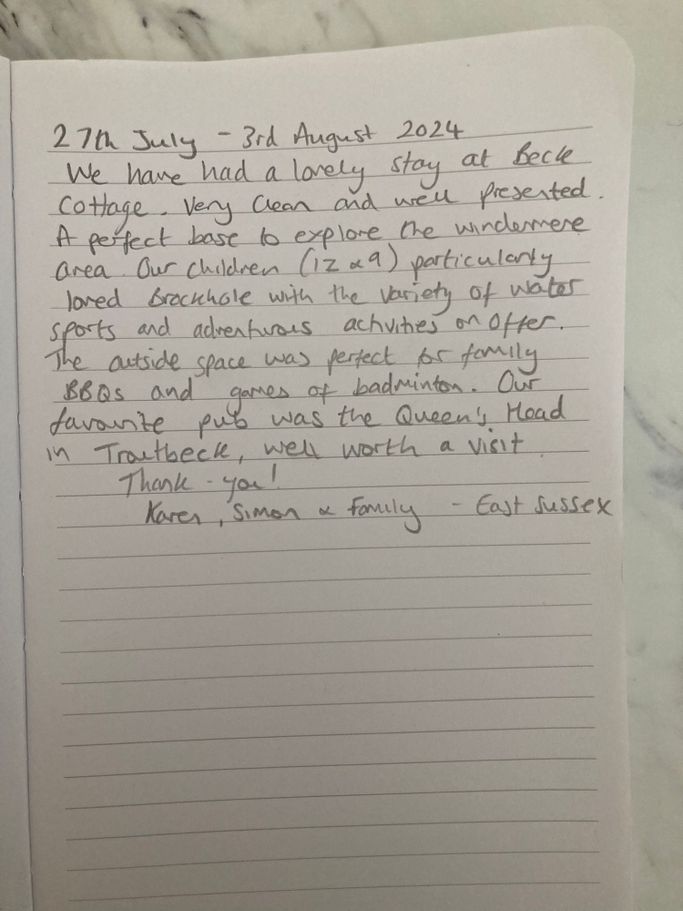 27th July - 3rd August 2024
We have had a lovely stay at Beck
Cottage. Very clean and well presented.
A perfect base to explore the windermere
area. Our children (12 & 9) particularly
loved Brockhole with the variety of water
sports and adventurous activities on offer.
The outside space was perfect for family
BBQs and games of badminton. Our
favourite pub was the Queen's Head
in Troutbeck, well worth a visit
Thank-you!
Karen, Simon & family - East Sussex